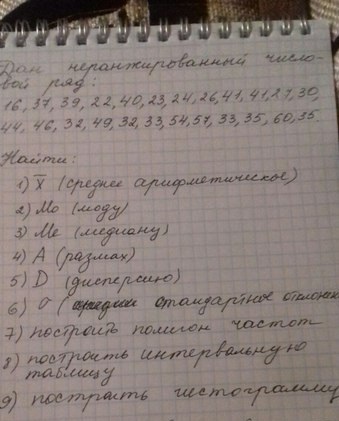 Дан неранжированный число-
вой ряд:
16, 37, 39, 22, 40, 23, 24, 26, 41, 41, 27, 30,
44, 46, 32, 49, 32, 33, 54, 57, 33, 35, 60, 35
Найти:
1) x̅ (среднее арифметическое)
2) Мо (моду)
3) Ме (медиану)
4) А (размах)
5) D (дисперсию)
6) σ ( стандартное отклонен
7) построить полигон частот
8) построить интервальную
таблицу
9) построить гистограмму